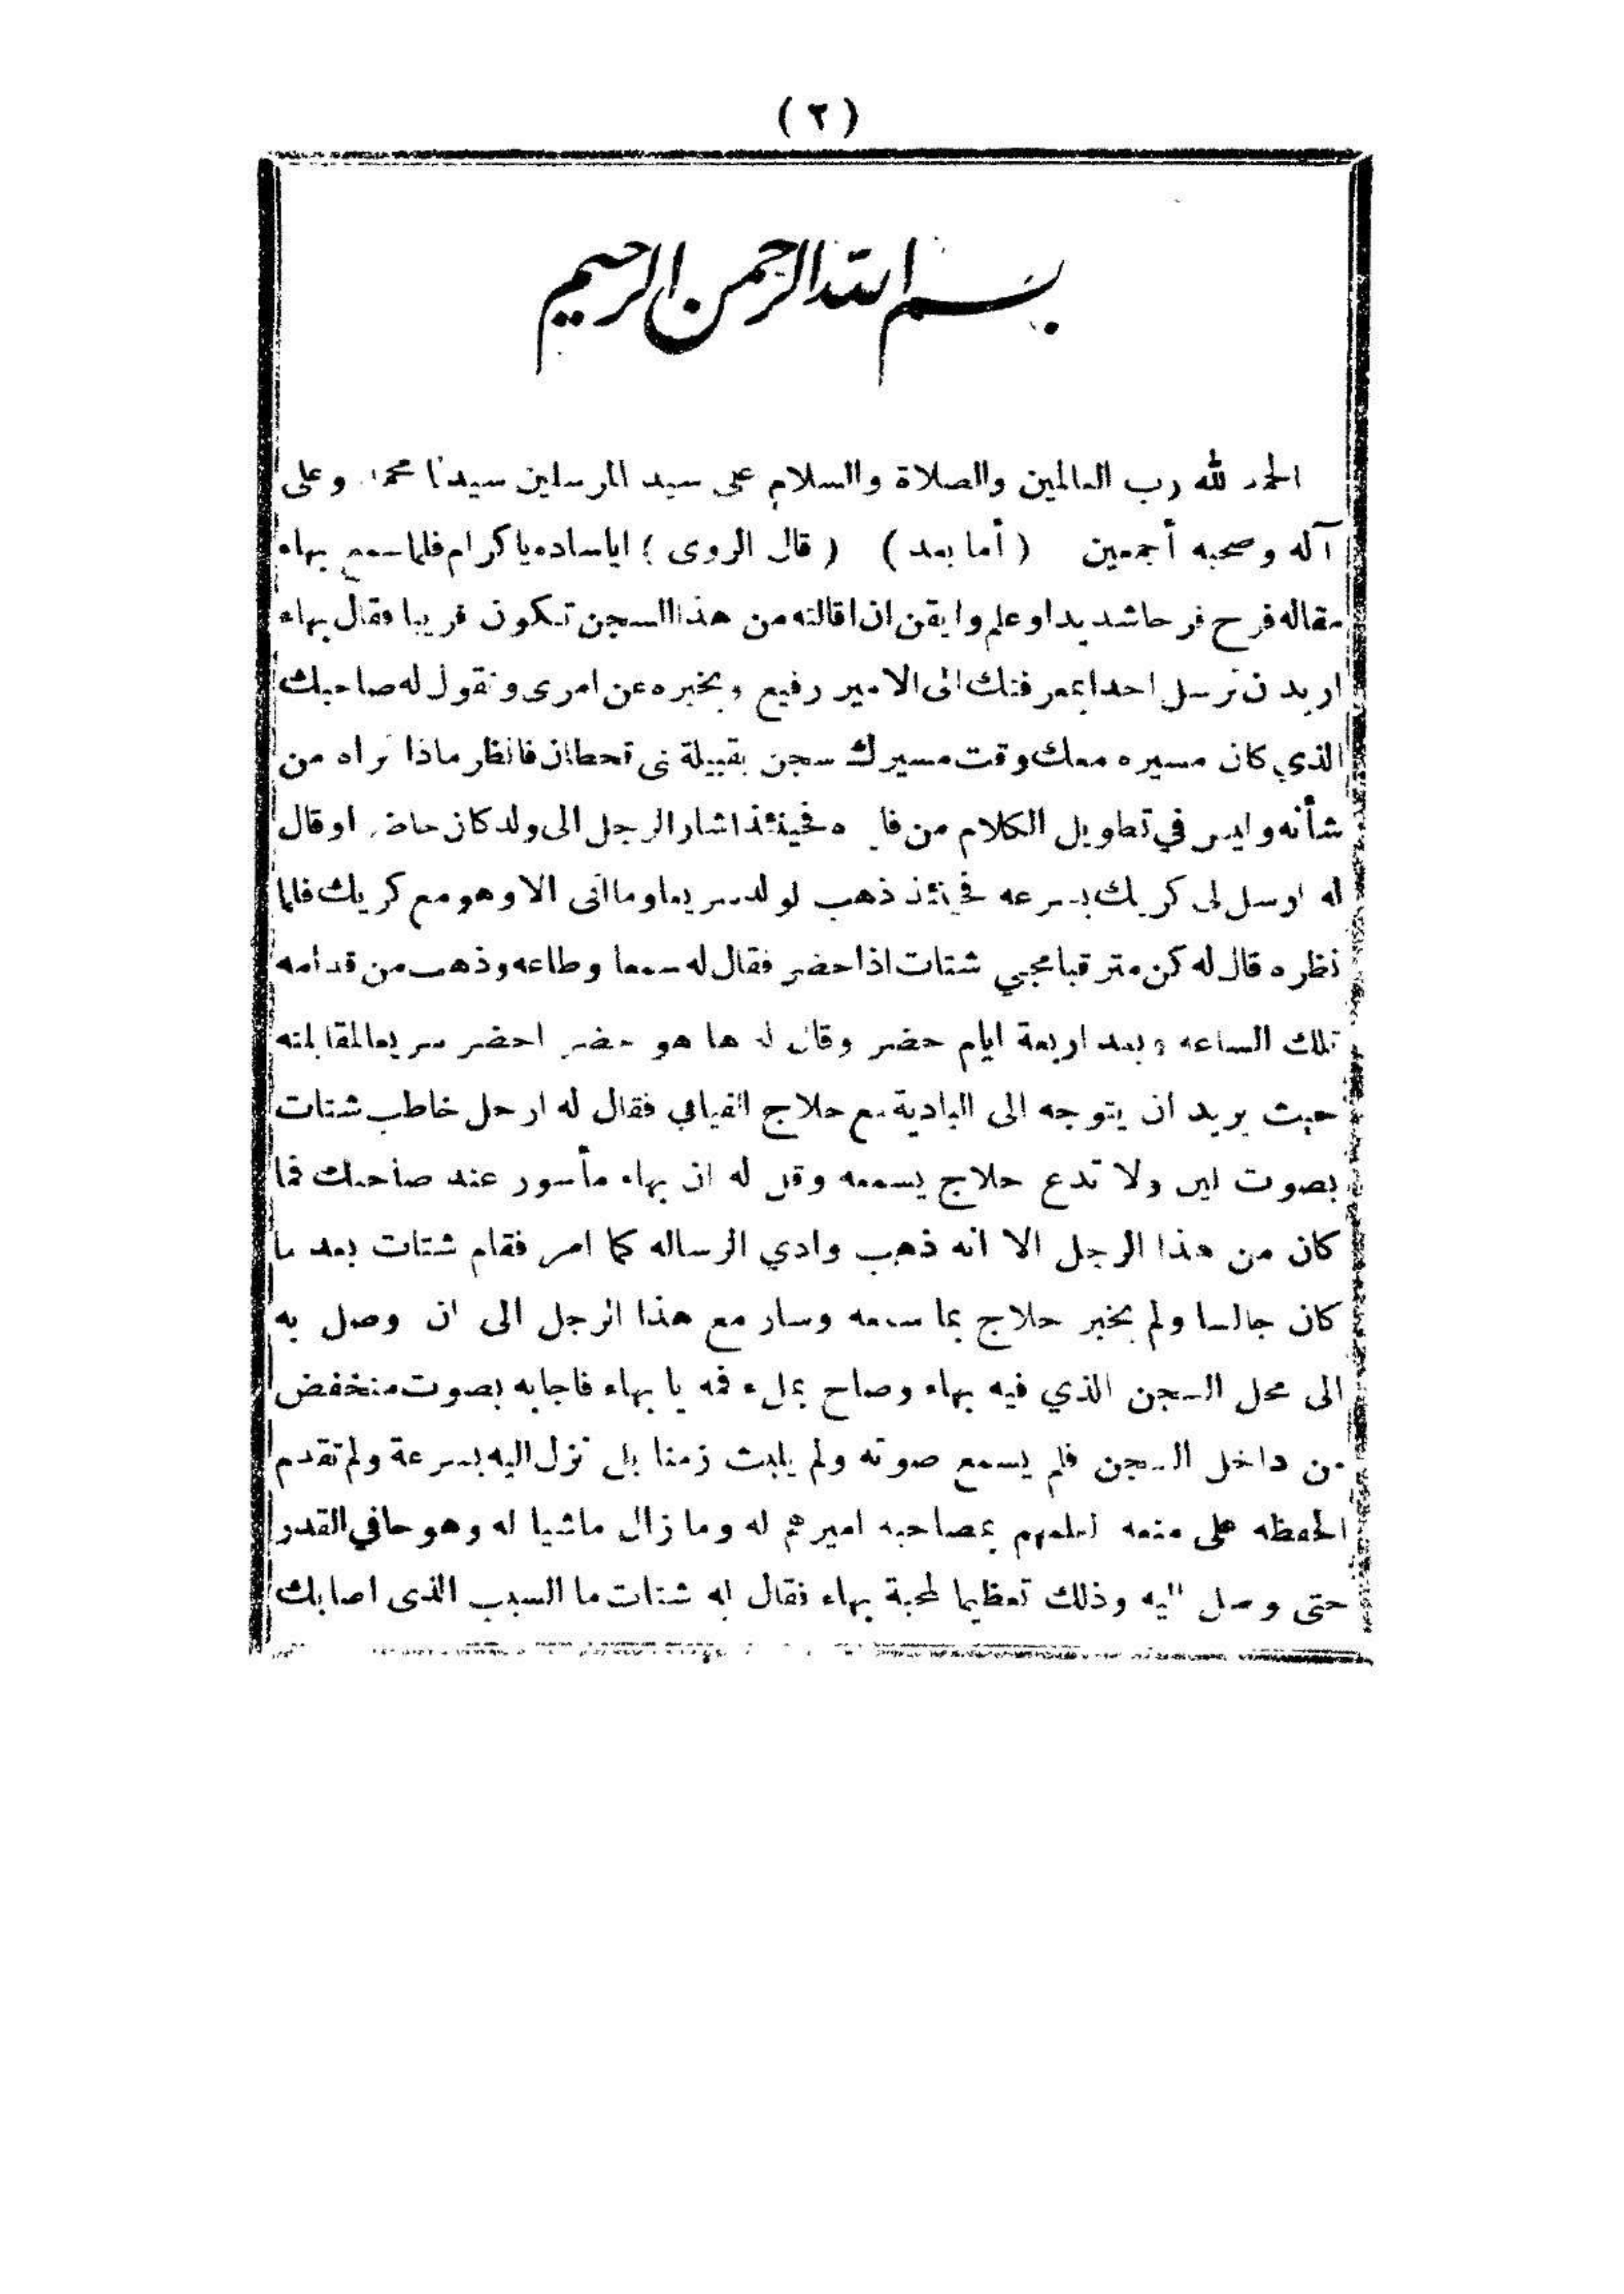 (٢)
بسم الله الرحمن الرحيم
الحمد لله رب العالمين والصلاة والسلام على سيد المرسلين سيدنا محمد وعلى
آله وصحبه أجمعين (أما بعد) (قال الروى) اياساده ياكرام فلما سمع بهاء
مقاله فرح فرحا شديدا وعلم وايقن ان اقالته من هذا السجن تكون قريبا فقال بهاء
اريد ن ترسل احدا بمعرفتك الى الامير رفيع ويخبره عن امرى وتقول له صاحبك
الذي كان مسيره معك وقت مسيرك سجن بقبيلة نى قحطان فانظر ماذا تراه من
شأنه وليس في تطويل الكلام من فا ه فحينئذ اشار الرجل الى ولد كان حاضرا وقال
له ارسل لى كريك بسرعه فحينئذ ذهب لولد سريعا وماانى الا وهو مع كريك فلما
نظره قال له كن مترقبا مجيي شتات اذا حضر فقال له سمعا وطاعه وذهب من قدامه
تلك الساعه وبعد اربعة ايام حضر وقال له ها هو حضر احضر سريعا لمقابلته
حيث يريد ان يتوجه الى البادية مع حلاج الفيافي فقال له ارحل خاطب شتات
بصوت لين ولا تدع حلاج يسمعه وقل له ان بهاء مأسور عند صاحبك فما
كان من هذا الرجل الا انه ذهب وادي الرساله كما امر فقام شتات بعد ما
كان جالسا ولم يخبر حلاج بما سمعه وسار مع هذا الرجل الى ان وصل به
الى محل السجن الذي فيه بهاء وصاح بملء فمه يا بهاء فاجابه بصوت منخفض
من داخل السجن فلم يسمع صوته ولم يلبث زمنا بل نزل اليه بسرعة ولم تقدم
الحفظه على منعه لعلمهم بمصاحبه اميرهم له وما زال ماشيا له وهو حافي القدر
حتى وصل اليه وذلك تعظيما لمحبة بهاء فقال له شتات ما السبب الذى اصابك